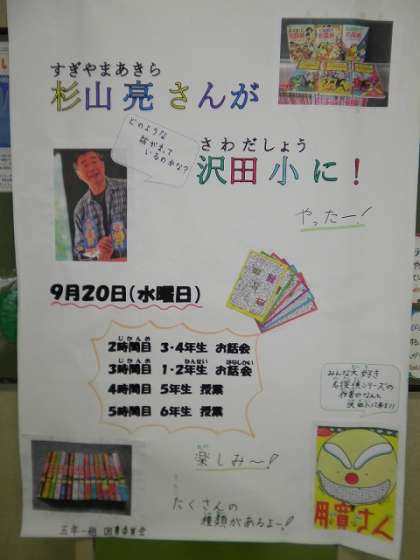 すぎやまあきら
杉山亮さんが
さわだしょう
沢田小に！
どのような
話がまって
いるのかな？
やったー！
9月20日（水曜日）
じかんめ
2時間目 3・4年生 お話会
じかんめ ねんせい おはなしかい
3時間目 1・2年生 お話会
4時間目 5年生 授業
5時間目 6年生 授業
みんな大好き
名探偵シリーズの
作者の
楽しみ〜！
たくさんの
種類があるよー！
用寛さん
五年一組 図書委員会